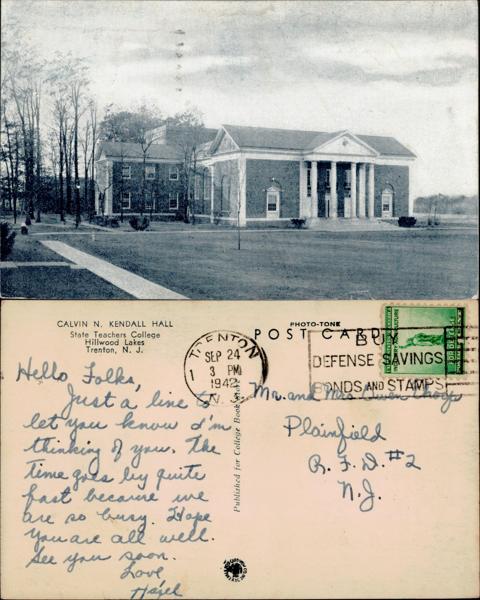 CALVIN N. KENDALL HALL
State Teachers College
Hillwood Lakes
Trenton, N. J.
PHOTO-TONE
POST CARD
TRENTON
1
SEP 24
3 PM
1942
N.J.
BUY
DEFENSE SAVINGS
BONDS AND STAMPS
Hello Folks,
Just a line to
let you know I'm
thinking of you. The
time goes by quite
fast because we
are so busy. Hope
you are all well.
See you soon.
Love
Hazel
Published for College Book
Mr. and Mrs Owen
Plainfield
R. F. D. #2
N.J.